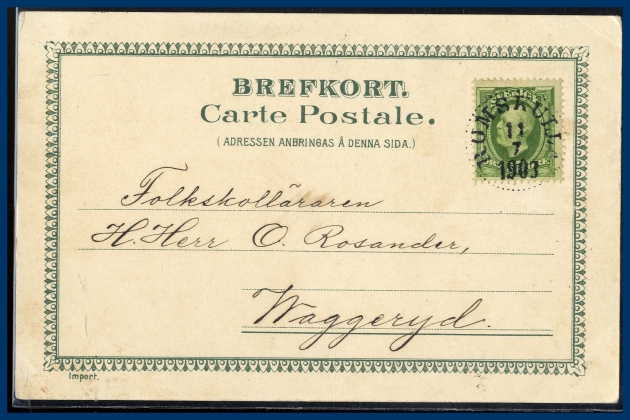 BREFKORT.
Carte Postale.
(ADRESSEN ANBRINGAS Å DENNA SIDA.)
SVERIGE
RUMSKULLA
11
7
1903
Folkskolläraren
H. Herr O. Rosander,
Waggeryd.
Import.